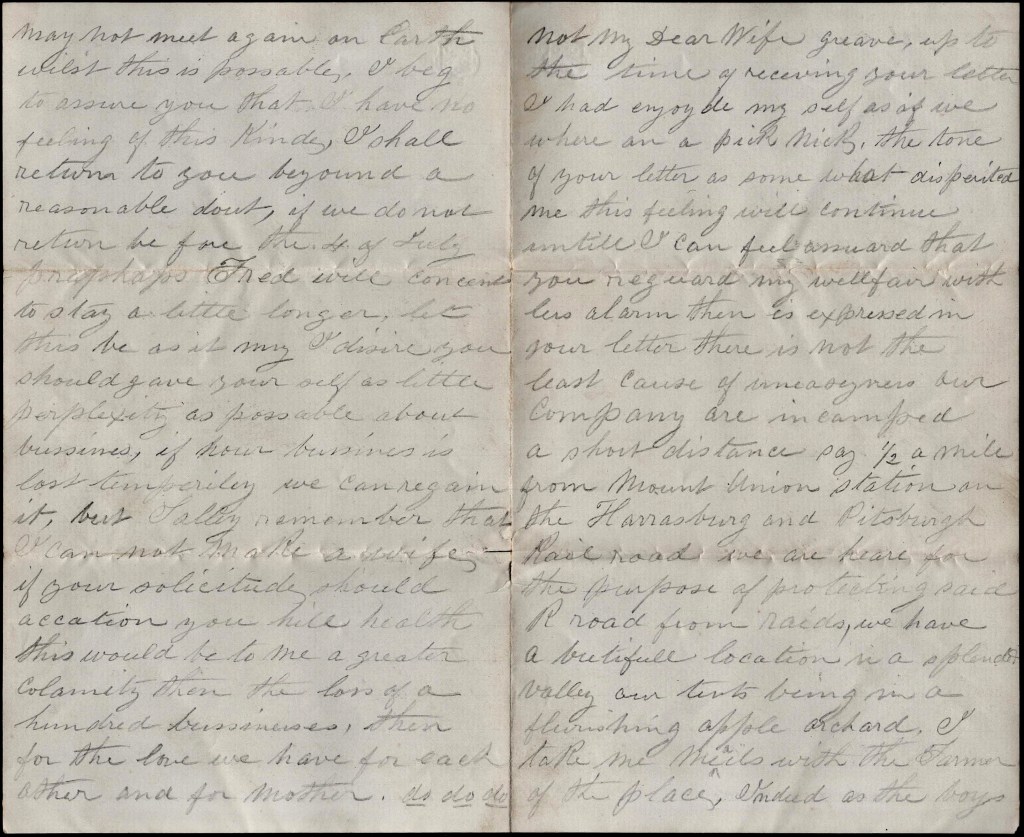 may not meet again on Earth
wilst this is possable, I beg
to assure you that I have no
feeling of this Kinde, I shall
return to you beyound a
reasonable dout, if we do not
return be fore the 4 of July
prapshaps Fred will concent
to stay a little longer, let
this be as it my I disire you
should gave your self as little
perplexity as possable about
bussines, if hour bussines is
lost temperiley we can regain
it, but Salley remember that
I can not make a wife,
if your solicitude should
accation you hill health
this would be to me a greater
Colamity then the loss of a
hundred bussinesses, then
for the love we have for each
other and for Mother. do do do
not My Dear Wife greave, up to
the time of receving your letter
I had enjoyde my self as if we
where on a pick Nick, the tone
of your letter as some what dispirited
me this feeling will continue
untill I can feel assuard that
you reguard my wellfair with
less alarm then is expressed in
your letter there is not the
least Cause of uneasyness our
Company are incamped
a short distance say 1/2 a mile
from Mount Union station on
the Harrasburg and Pitsburgh
Rail road we are heare for
the purpose of protecting said
R road from raids, we have
a butifull location in a splended
valley our tents being in a
flurishing apple orchard, I
take me Meails with the Farmer
of the place, Indeed as the boys